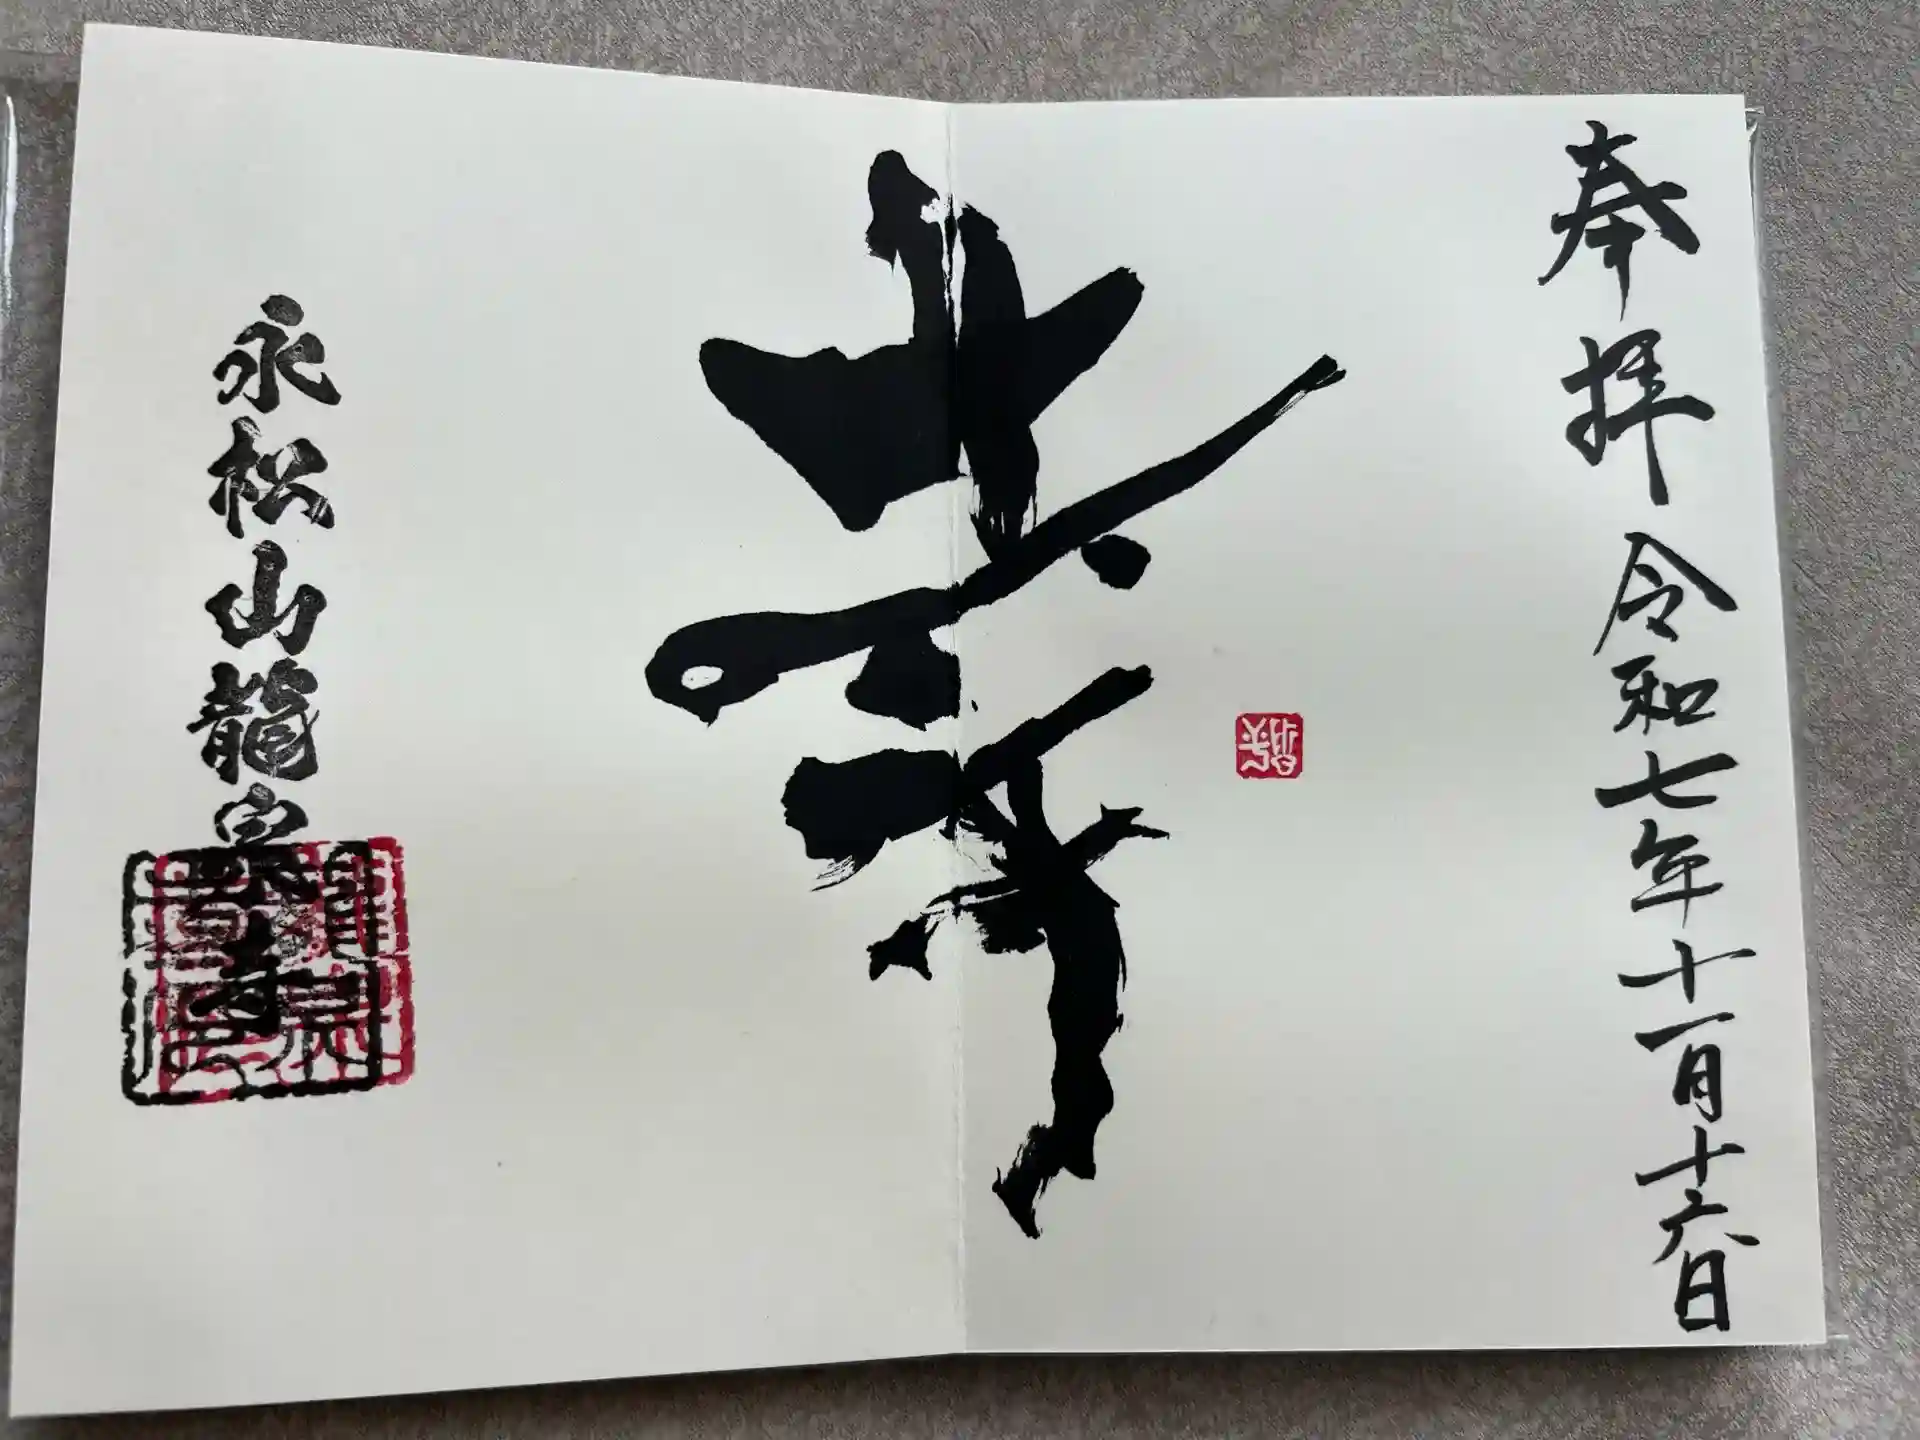 奉拝 令和七年十一月十六日
幸
永松山龍泉寺